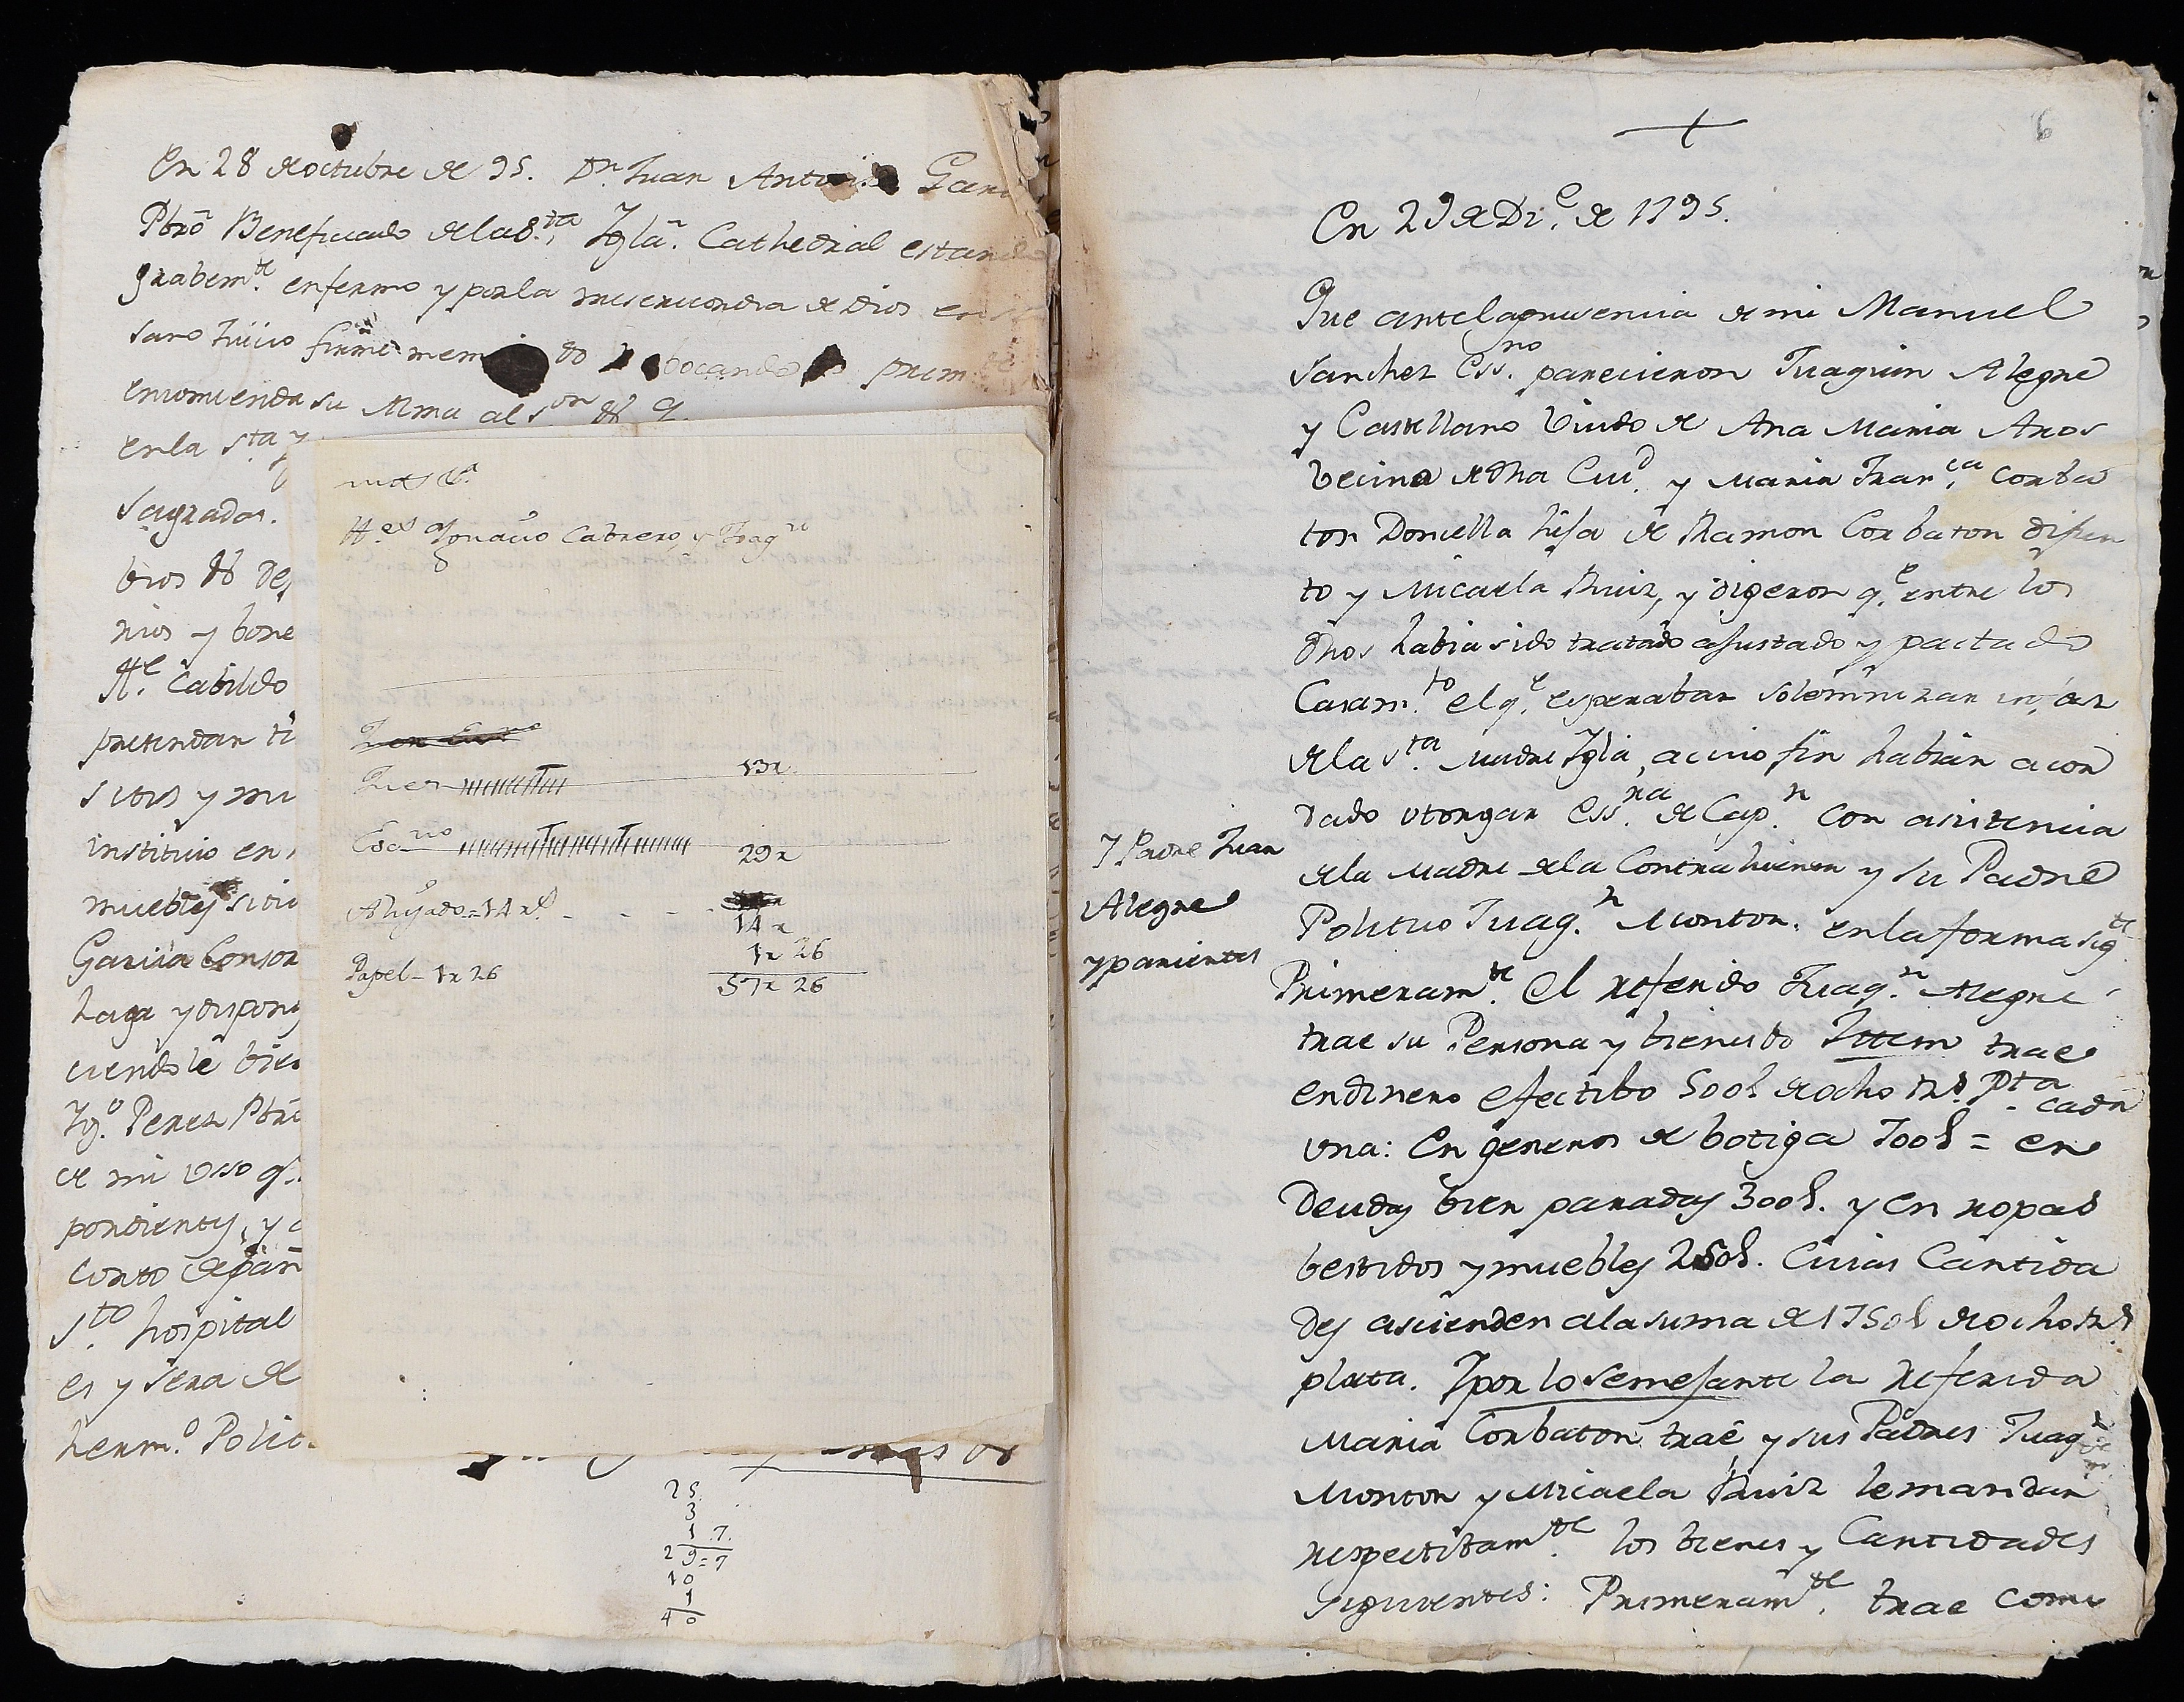 En 28 de octubre de 95. Dn. Juan Antonio Garc
Pbro Beneficiado de la S.ta Igla. Cathedral estando
grabem.te enfermo y por la misericordia de Dios en su
sano Juicio firme mem do bocando prim
encomienda su Alma al S.or
en la S.ta y
Sagrados.
vios
nios y bone
Ye. Cabildo
pretendan
sitios y mu
instituio en
muebles sitio
Garcia Consor
haga y dispong
ciendole bien
Ig.o Perez Pbro
de mi uso q.
pondientes, y
conto de pan
S.to hospital
es y sera de
herm.o Polit.
H.es Ignacio Cabrero, y Joaq.n
Juez 13r.
Esc.no 29r
Ahijado=14 r.s 14r
Papel-1r 26 1r 26
57r 26
25
3
1 7.
29=7
10
1
40
6
En 29 de Di.e de 1795.
Que ante la presencia de mi Manuel
Sanchez Ess.no parecieron Juaquin Alegre
y Castellano Viudo de Ana Maria Aros
Vecino de dha Ciud. y Maria Fran.ca Corba
ton Doncella hija de Ramon Corbaton difun
to y Micaela Ruiz, y digeron q.e entre los
dhos habia sido tratado ajustado y pactado
Casam.to el q.e esperaban solemnizar in faz
de la S.ta Madre Igla, a cuio fin habian acor
dado otorgar Ess.ra de Cap.n con asistencia
de la Madre de la Contrahiente y su Padre
Politico Juaq.n Monton. en la forma sig.te
Y Padre Juan
Alegre
y parientes
Primeram.te El referido Juaq.n Alegre
trae su Persona y bienes do Ittem trae
en dinero efectibo 500l de ocho Rs. Pta cada
una: En generos de botiga 700l = en
Deudas bien paradas 300l. y en ropas
bestidos y muebles 250l. Cuias Cantida
des ascienden a la suma de 1750l de ocho Rs
plata. Y por lo semejante la referida
Maria Corbaton trae, y sus Padres Juaq.n
Monton y Micaela Ruiz le mandan
respectibam.te los bienes y Cantidades
siguientes: Primeram.te trae como